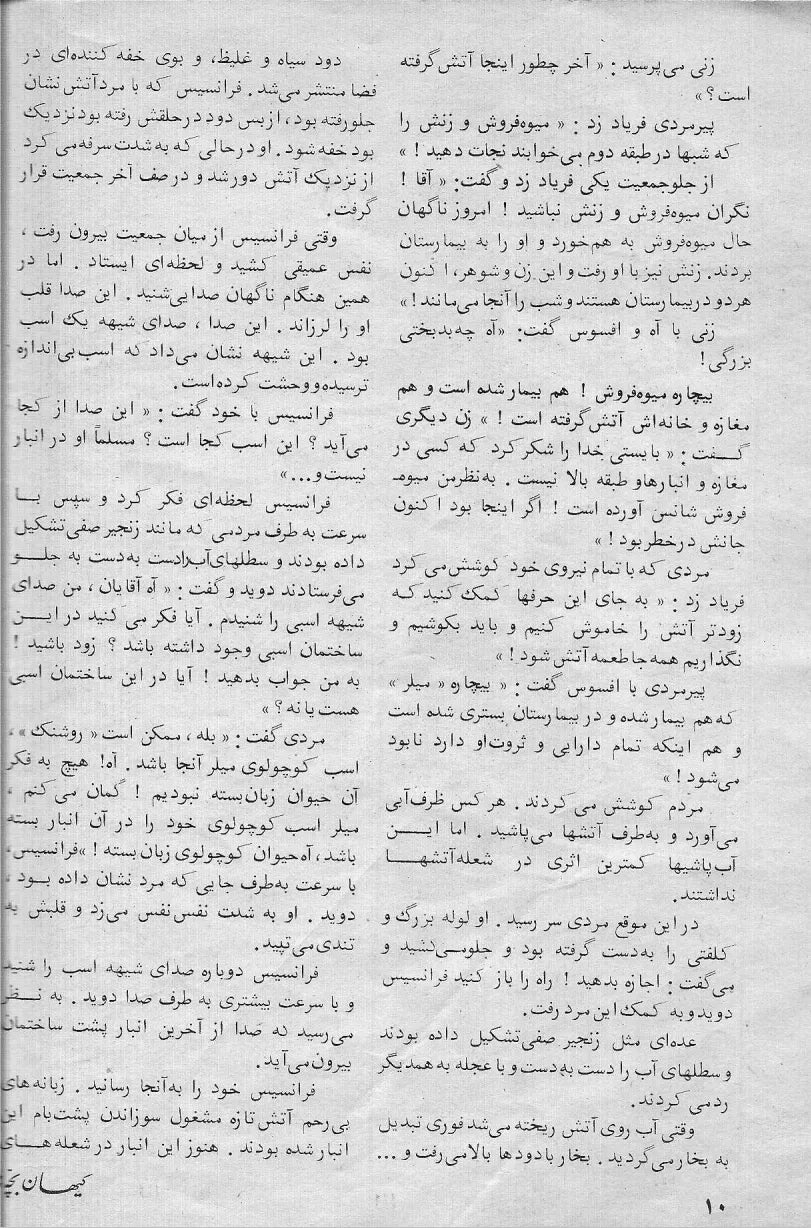 زنی می‌پرسید: « آخر چطور اینجا آتش‌گرفته
است؟»
پیرمردی فریاد زد: « میوه‌فروش و زنش را
که شبها در طبقه دوم می‌خوابند نجات دهید! »
از جلو جمعیت یکی فریاد زد و گفت: « آقا !
نگران میوه‌فروش و زنش نباشید ! امروز ناگهان
حال میوه‌فروش به هم‌خورد و او را به بیمارستان
بردند. زنش نیز با او رفت و این زن و شوهر، اکنون
هر دو در بیمارستان هستند و شب را آنجا می‌مانند!»
زنی با آه و افسوس گفت: «آه چه‌بدبختی
بزرگی!
بیچاره میوه‌فروش ! هم بیمار شده است و هم
مغازه و خانه‌اش آتش‌گرفته است ! » زن دیگری
گفت: « بایستی خدا را شکر کرد که کسی در
مغازه و انبارها و طبقه بالا نیست . به‌نظر من میوه‌ـ
فروش شانس آورده است ! اگر اینجا بود اکنون
جانش در خطر بود ! »
مردی که با تمام نیروی خود کوشش می‌کرد
فریاد زد: « به جای این حرفها کمک کنید که
زودتر آتش را خاموش کنیم و باید بکوشیم و
نگذاریم همه‌جا طعمه آتش شود ! »
پیرمردی با افسوس گفت: « بیچاره « میلر »
که هم بیمار شده و در بیمارستان بستری شده است
و هم اینکه تمام دارایی و ثروت‌او دارد نابود
می‌شود ! »
مردم کوشش می‌کردند . هرکس ظرف‌آبی
می‌آورد و به‌طرف آتشها می‌پاشید . اما این
آب‌پاشیها کمترین اثری در شعله‌آتشها
نداشتند.
در این موقع مردی سر رسید . او لوله بزرگ و
کلفتی را به‌دست گرفته بود و جلو می‌کشید و
می‌گفت: اجازه بدهید ! راه را باز کنید فرانسیس
دوید و به کمک این مرد رفت.
عده‌ای مثل زنجیر صفی‌تشکیل داده بودند
و سطلهای آب را دست به‌دست و با عجله به همدیگر
رد می‌کردند.
وقتی آب روی آتش ریخته می‌شد فوری تبدیل
به بخار می‌گردید . بخار با دودها بالا می‌رفت و ...
دود سیاه و غلیظ، و بوی خفه‌کننده‌ای در
فضا منتشر می‌شد . فرانسیس که با مرد آتش نشان
جلو رفته بود ، از بس دود در حلقش رفته بود نزدیک
بود خفه شود . او در حالی که به‌شدت سرفه می‌کرد
از نزدیک آتش دور شد و در صف آخر جمعیت قرار
گرفت.
وقتی فرانسیس از میان جمعیت بیرون رفت ،
نفس عمیقی کشید و لحظه‌ای ایستاد . اما در
همین هنگام ناگهان صدایی‌شنید . این صدا قلب
او را لرزاند . این صدا ، صدای شیهه یک اسب
بود . این شیهه نشان می‌داد که اسب بی‌اندازه
ترسیده و وحشت کرده‌است.
فرانسیس با خود گفت: « این صدا از کجا
می‌آید ؟ این اسب کجا است ؟ مسلماً او در انبار
نیست و...»
فرانسیس لحظه‌ای فکر کرد و سپس با
سرعت به طرف مردمی که مانند زنجیر صفی‌تشکیل
داده بودند و سطلهای آب را دست به‌دست به جلو
می‌فرستادند دوید و گفت: « آه آقایان ، من صدای
شیهه اسبی را شنیدم . آیا فکر می کنید در این
ساختمان اسبی وجود داشته باشد ؟ زود باشید !
به من جواب بدهید ! آیا در این ساختمان اسبی
هست یا نه ؟ »
مردی گفت: « بله ، ممکن است « روشنک » ،
اسب کوچولوی میلر آنجا باشد . آه! هیچ به فکر
آن حیوان زبان‌بسته نبودیم ! گمان می‌کنم ،
میلر اسب کوچولوی خود را در آن انبار بسته
باشد ، آه حیوان کوچولوی زبان بسته ! » فرانسیس ،
با سرعت به‌طرف جایی که مرد نشان داده بود ،
دوید . او به شدت نفس‌نفس می‌زد و قلبش به
تندی می‌تپید.
فرانسیس دوباره صدای شیهه اسب را شنید
و با سرعت بیشتری به طرف صدا دوید . به نظر
می‌رسید که صدا از آخرین انبار پشت ساختمان
بیرون می‌آید.
فرانسیس خود را به‌آنجا رسانید . زبانه‌های
بی‌رحم آتش تازه مشغول سوزاندن پشت‌بام این
انبار شده بودند . هنوز این انبار در شعله‌های
کیهان بچه
۱۰